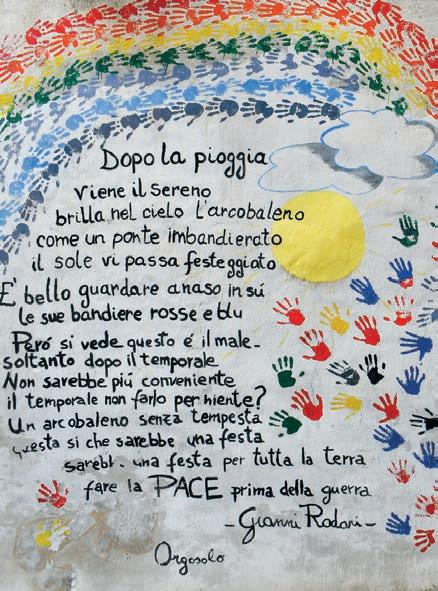 Dopo la pioggia
viene il sereno
brilla nel cielo l'arcobaleno
come un ponte imbandierato
il sole vi passa festeggiato
E' bello guardare a naso in sú
le sue bandiere rosse e blu
Peró si vede questo é il male-
soltanto dopo il temporale
Non sarebbe piú conveniente
il temporale non farlo per niente?
Un arcobaleno senza tempesta
questa si che sarebbe una festa
sarebb. una festa per tutta la terra
fare la PACE prima della guerra
- Gianni Rodari -
Orgosolo